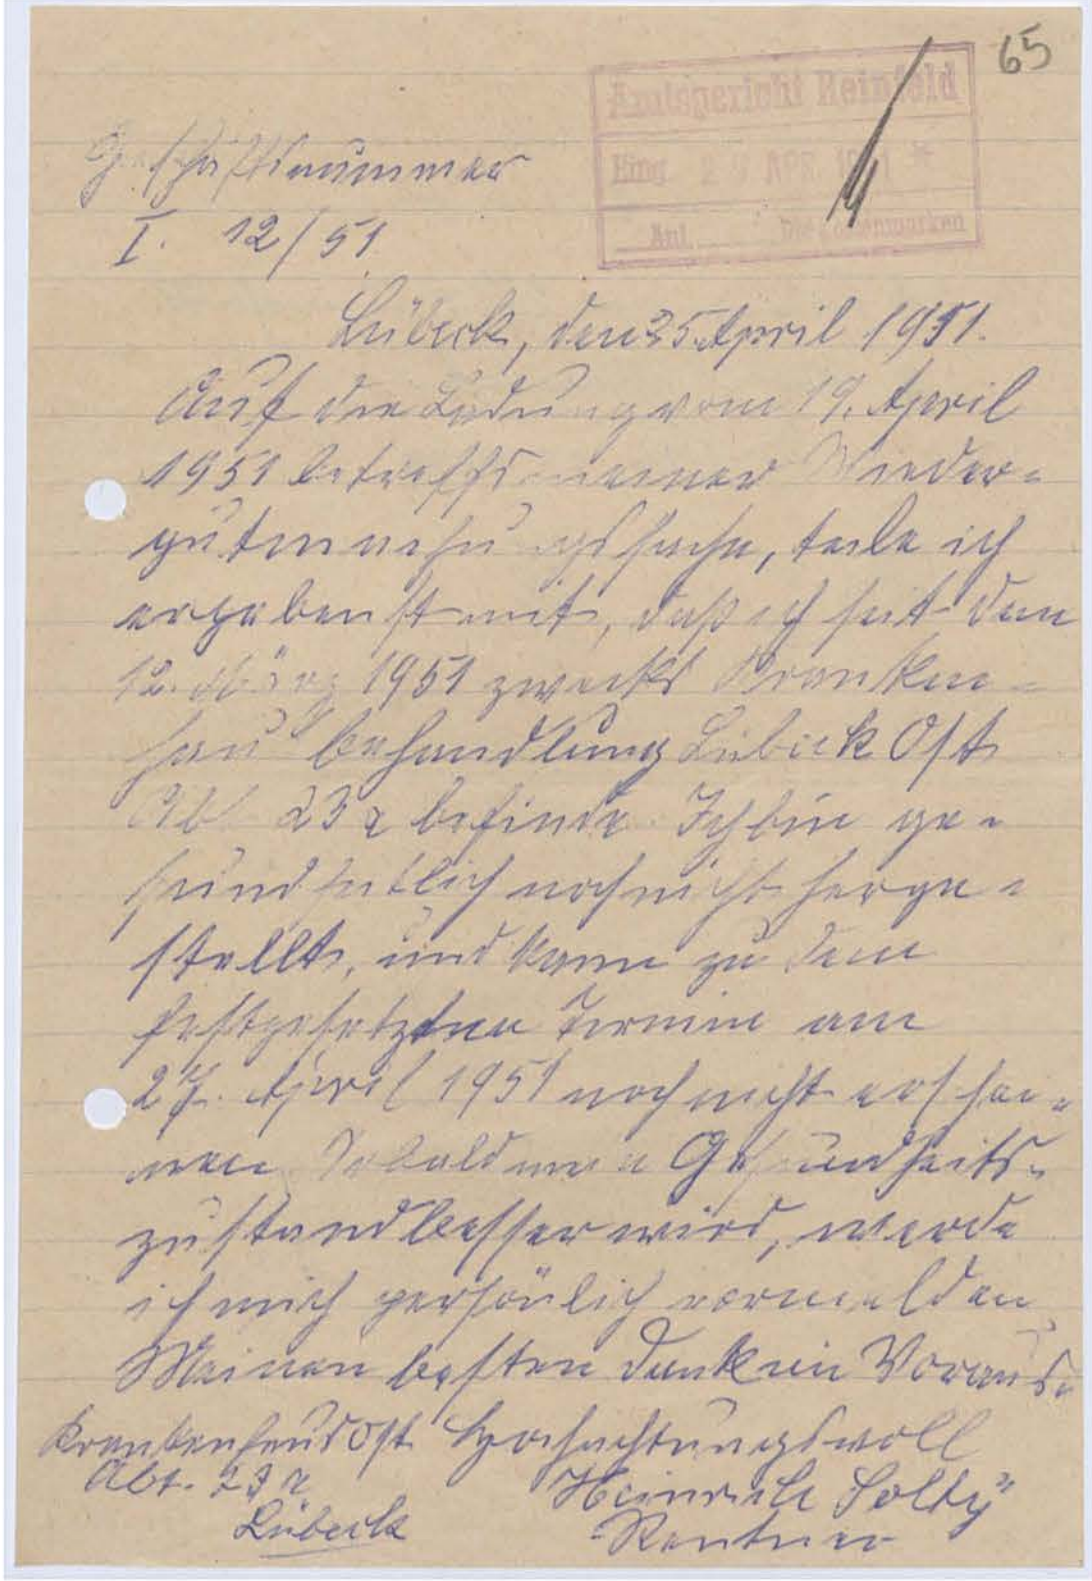 65
Amtsgericht Reinfeld
Eing. APR. 1951
Anl. Kostenmarken
Geschäftsnummer
I. 12/51
Lübeck, den 25. April 1951.
Auf die Ladung vom 19. April
1951 betreffs meiner Wieder-
gutmachungssache, teile ich
ergebenst mit, daß ich seit dem
12. März 1951 zwecks Kranken-
haus behandlung Lübeck Ost
Abt 23a befinde. Ich bin ge-
sundheitlich noch nicht herge-
stellt, und kann zu dem
festgesetzten Termin am
27. April 1951 noch nicht erschei-
nen. Sobald mein Gesundheits-
zustand besser wird, werde
ich mich persönlich vormelden
Meinen besten Dank im Voraus.
Krankenhaus Ost Hochachtungsvoll
Abt. 23a Heinrich
Lübeck Rentner